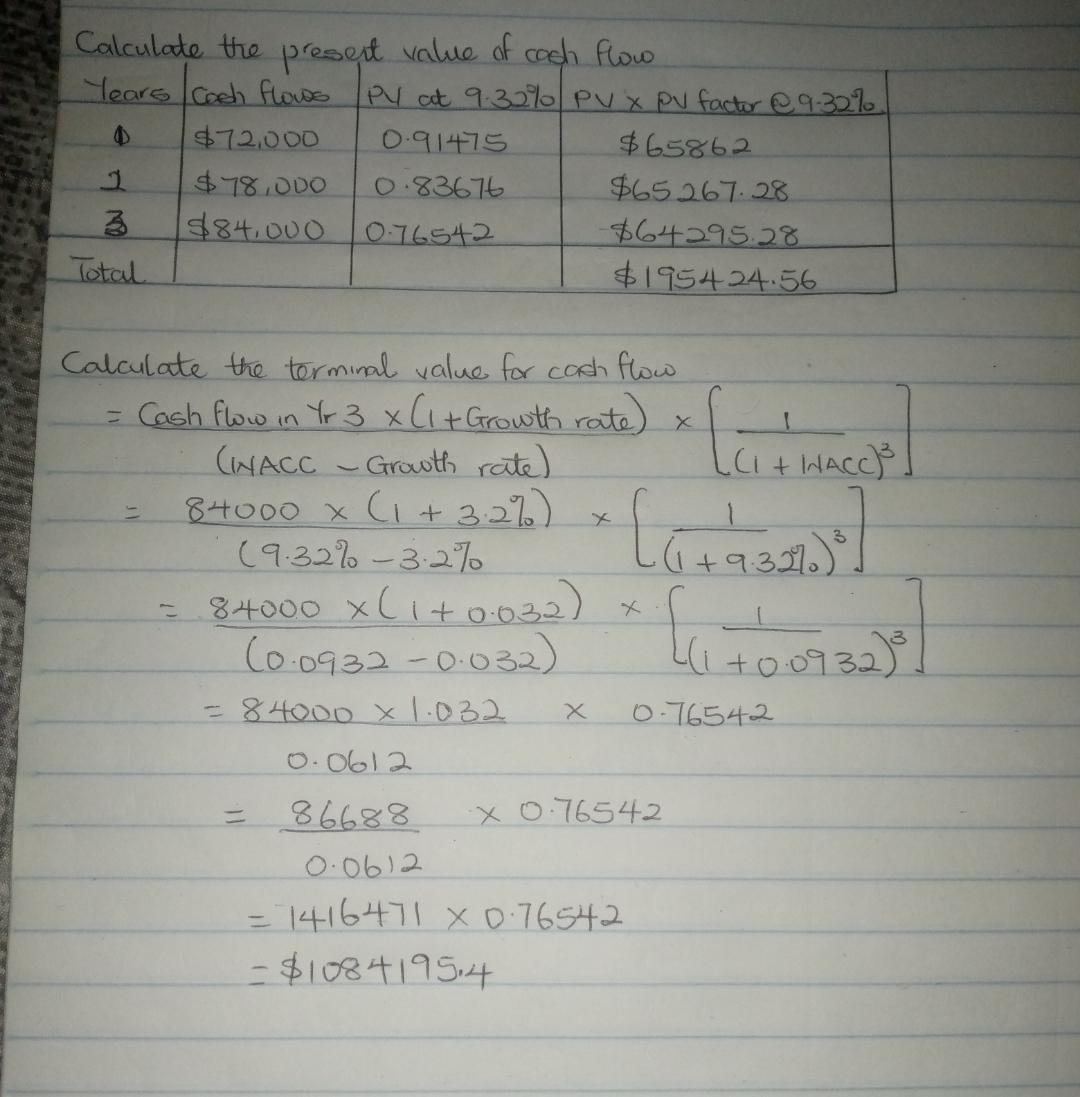 Calculate the present value of cash flow
Years Cash flows PV at 9.32% PV x PV factor @ 9.32%
1 $72,000 0.91475 $65862
2 $78,000 0.83676 $65267.28
3 $84,000 0.76542 $64295.28
Total $195424.56
Calculate the terminal value for cash flow
= Cash flow in Yr 3 x (1 + Growth rate) x [ 1
(WACC - Growth rate) (1 + WACC)³ ]
= 84000 x (1 + 3.2%) x [ 1
(9.32% - 3.2% (1 + 9.32%)³ ]
= 84000 x (1 + 0.032) x [ 1
(0.0932 - 0.032) (1 + 0.0932)³ ]
= 84000 x 1.032 x 0.76542
0.0612
= 86688 x 0.76542
0.0612
= 1416471 x 0.76542
= $1084195.4